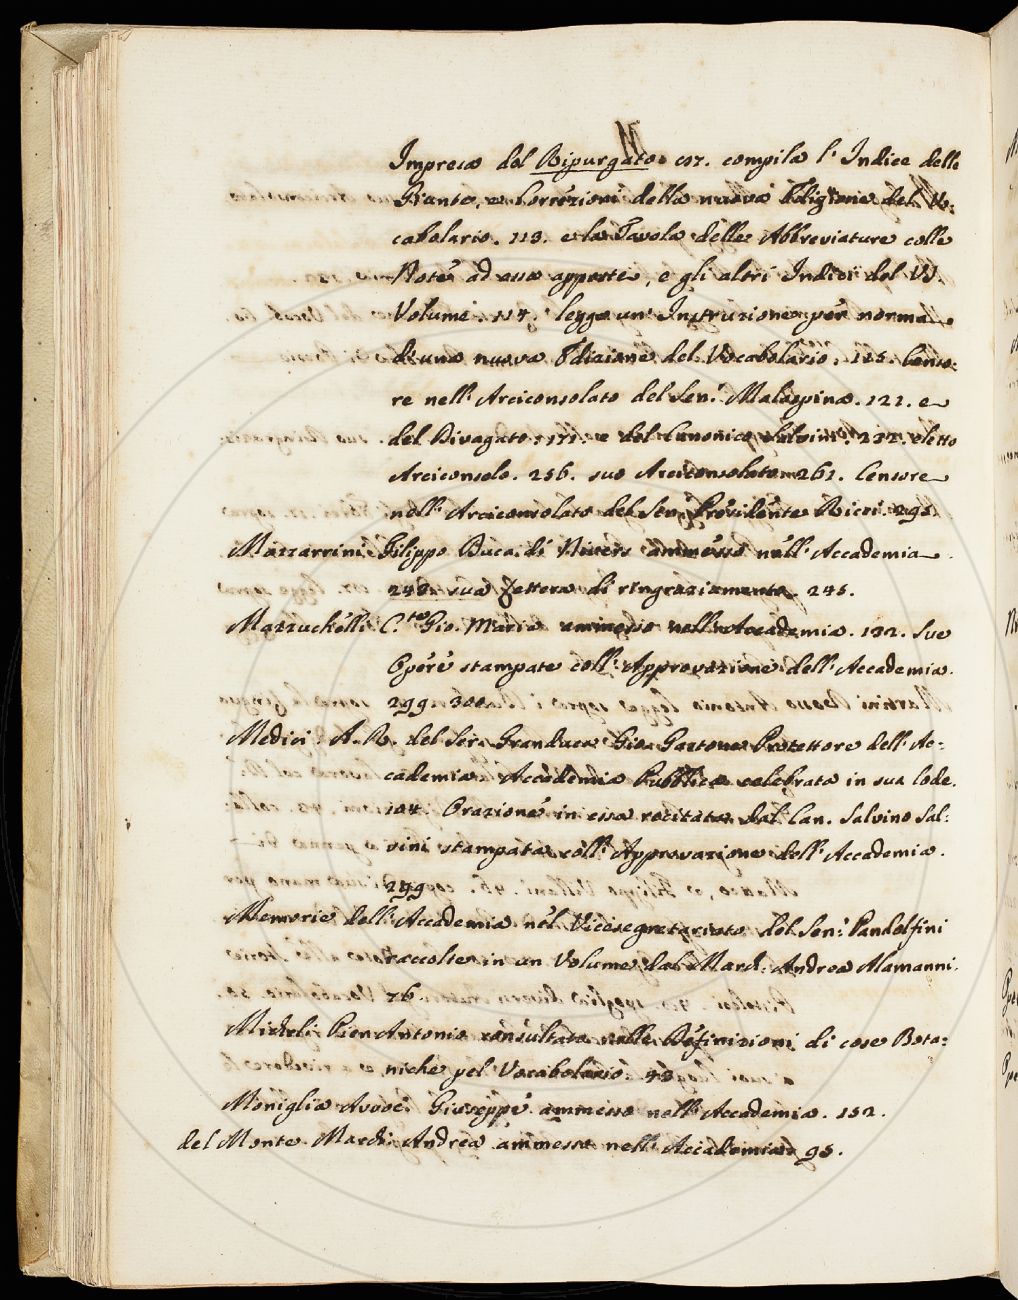 M
Impresa del Ripurgato. 107. compila l'Indice delle
Giunte, e Correzioni della nuova Edizione del Vo:
cabolario. 113. e la Tavola delle Abbreviature colle
Note ad esse apposte, e gli altri Indici del VI.
Volume. 114. legge un'Instruzione per norma
di una nuova Edizione del Vocabolario. 115. Censo:
re nell'Arciconsolato del Sen.r Malaspina. 121. e
del Divagato. 171. e del Canonico Salvini. 232. eletto
Arciconsolo. 256. suo Arciconsolato. 261. Censore
nell'Arciconsolato del Sen. Provid.nte Ricci. 295.
Mazzarrini Filippo Duca di Nivers ammesso nell'Accademia
243. sua Lettera di ringraziamento. 245.
Mazzuchelli C.te Gio. Maria ammesso nell'Accademia. 132. Sue
Opere stampate coll'Approvazione dell'Accademia.
299. 300.
Medici A. R. del Ser. Granduca Gio. Gastone Protettore dell'Ac:
cademia. Accademia Pubblica celebrata in sua lode.
104. Orazione in essa recitata dal Can. Salvino Sal:
vini stampata coll'Approvazione dell'Accademia.
299
Memorie dell'Accademia nel Vicesegretariato del Sen. Pandolfini
raccolte in un Volume dal March. Andrea Alamanni.
76.
Micheli Pier Antonio consultato nelle Definizioni di cose Bota:
niche pel Vocabolario. 43.
Moniglia Avvoc. Giuseppe ammesso nell'Accademia. 152.
del Monte March. Andrea ammesso nell'Accademia 95.